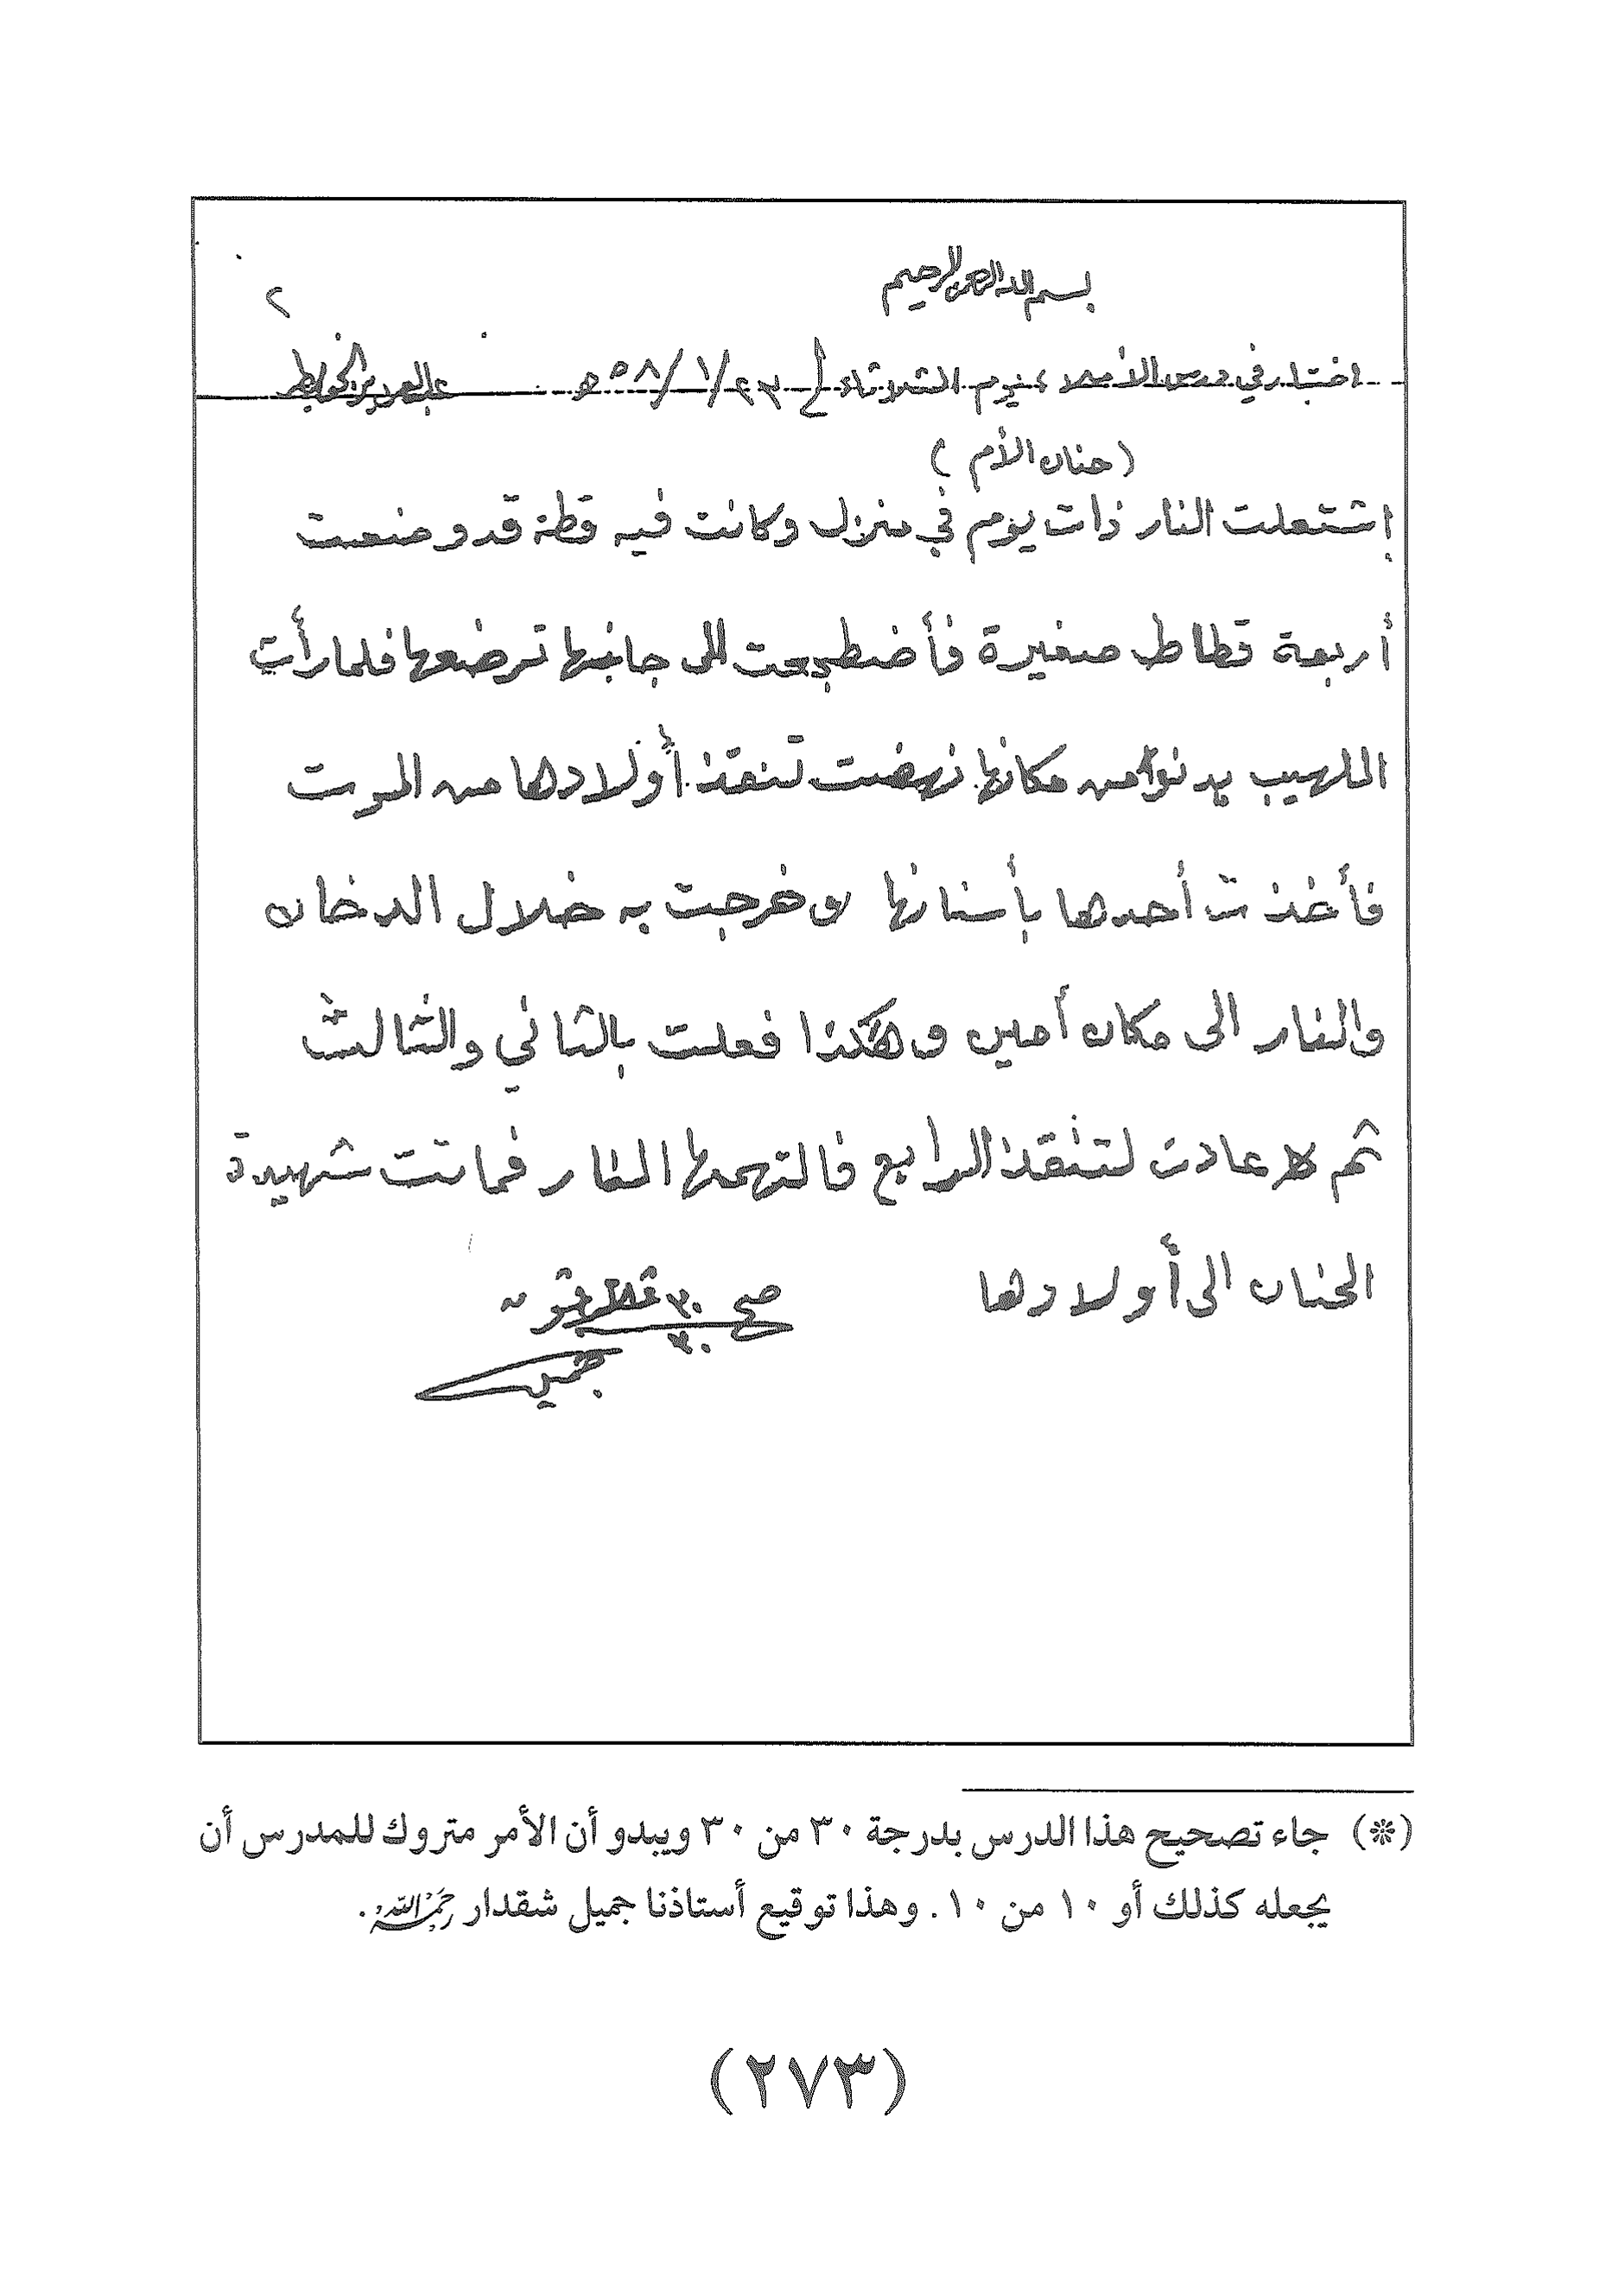 بسم الله الرحمن الرحيم
٢
اختبار في درس الأملاء يوم الثلاثاء ٢٣/١/٥٨ هـ عبد العزيز الخويطر
(حنان الأم)
إشتعلت النار ذات يوم في منزل وكانت فيه قطة قد وضعت
أربعة قطاط صغيرة فأضطجعت الى جانبها ترضعها فلما رأت
اللهيب يدنوا من مكانها نهضت تنقذ أولادها من الموت
فأخذت أحدها بأسنانها وخرجت به خلال الدخان
والنار الى مكان أمين وهكذا فعلت بالثاني والثالث
ثم عادت لتنقذ الرابع فالتهمها النار فماتت شهيدة
الحنان الى أولادها
صح ٣٠
٣٠
جميل
(*) جاء تصحيح هذا الدرس بدرجة ٣٠ من ٣٠ ويبدو أن الأمر متروك للمدرس أن
يجعله كذلك أو ١٠ من ١٠. وهذا توقيع أستاذنا جميل شقدار رحمه الله.
(٢٧٣)